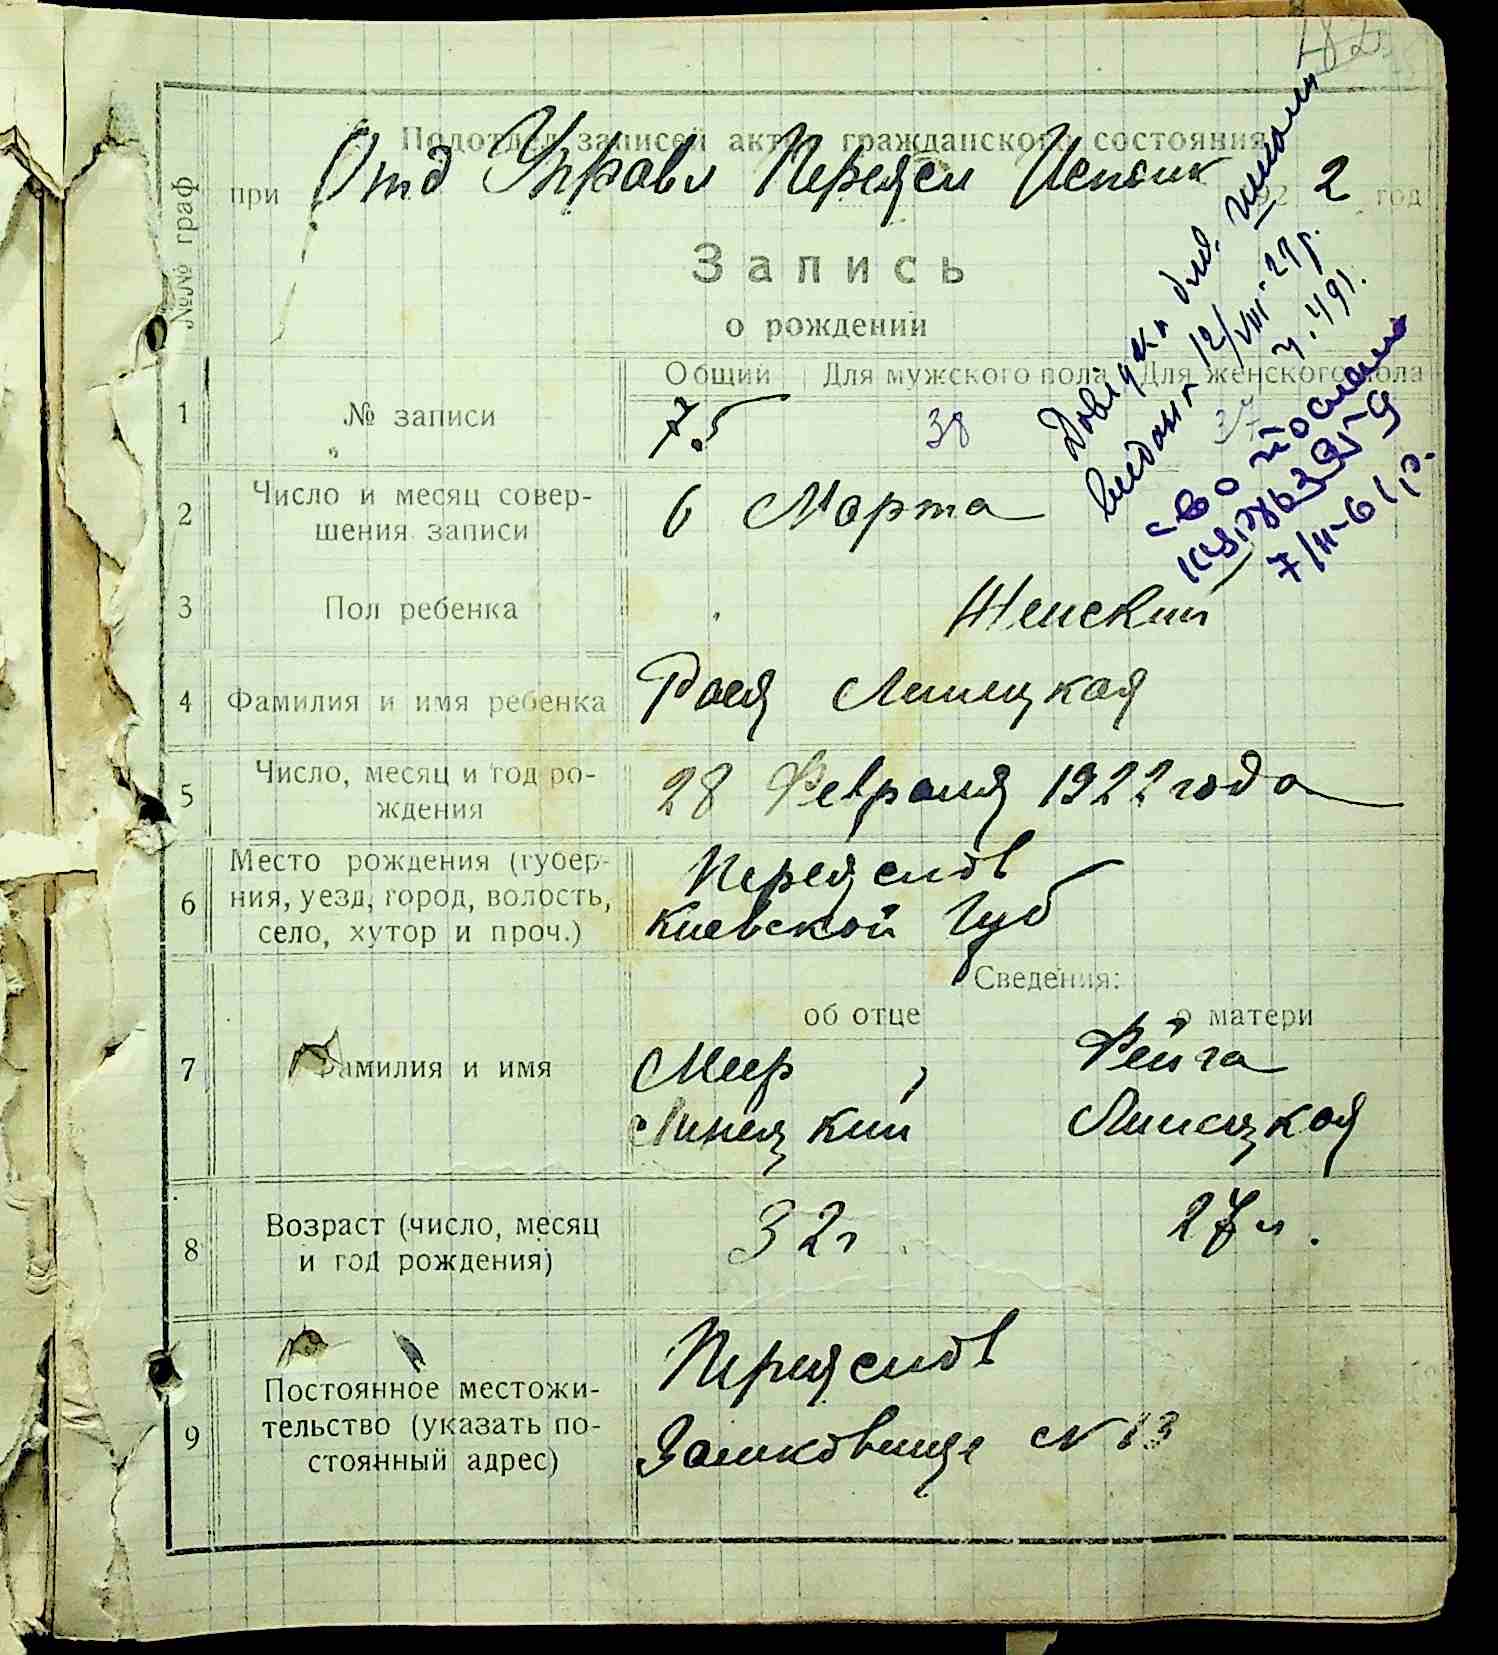 Подотдел записей актов гражданского состояния
при Отд Управл Переясл Исполк 1922 год
Запись
о рождении
№№ граф
Общий Для мужского пола Для женского пола
1 № записи 75 38 37
2 Число и месяц совер-
шения записи 6 Марта
3 Пол ребенка Женский
4 Фамилия и имя ребенка Рося Линецкая
5 Число, месяц и год ро-
ждения 28 Февраля 1922 года
6 Место рождения (губер-
ния, уезд, город, волость,
село, хутор и проч.) Переяслов
Киевской Губ
Сведения:
об отце о матери
7 Фамилия и имя Меер Фейга
Линецкий Линецкая
8 Возраст (число, месяц
и год рождения) 32 г 27 л.
9 Постоянное местожи-
тельство (указать по-
стоянный адрес) Переяслов
Замковище № 13
Довідка для школи
видана 12/VIII-29 р.
ч. 491.
св-во послано
7/II-61 р.